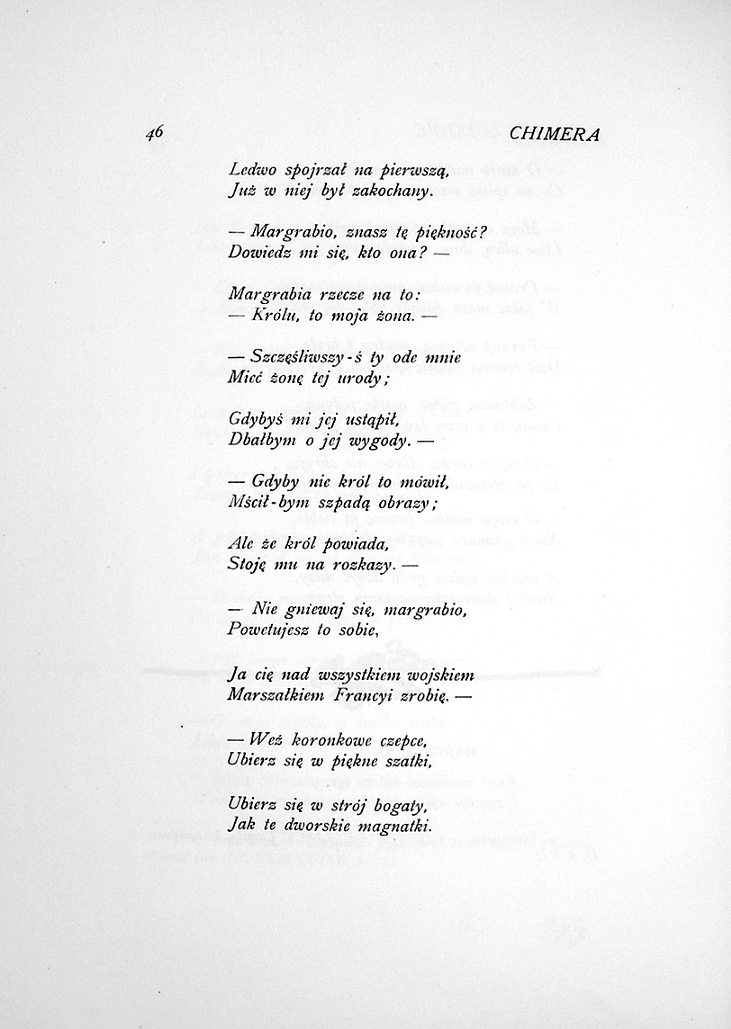 46 CHIMERA
Ledwo spojrzał na pierwszą,
Już w niej był zakochany.
— Margrabio, znasz tę piękność?
Dowiedz mi się, kto ona? —
Margrabia rzecze na to:
— Królu, to moja żona. —
— Szczęśliwszy-ś ty ode mnie
Mieć żonę tej urody;
Gdybyś mi jej ustąpił,
Dbałbym o jej wygody. —
— Gdyby nie król to mówił,
Mścił-bym szpadą obrazy;
Ale że król powiada,
Stoję mu na rozkazy. —
— Nie gniewaj się, margrabio,
Powetujesz to sobie,
Ja cię nad wszystkiem wojskiem
Marszałkiem Francyi zrobię. —
— Weź koronkowe czepce,
Ubierz się w piękne szatki,
Ubierz się w strój bogaty,
Jak te dworskie magnatki.